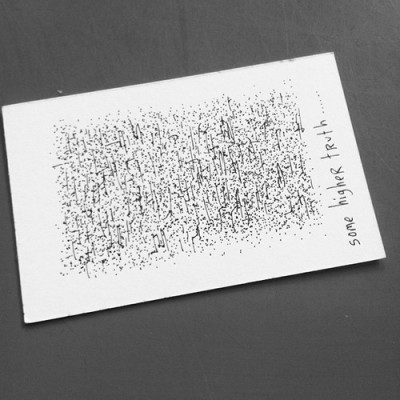 some higher truth.....